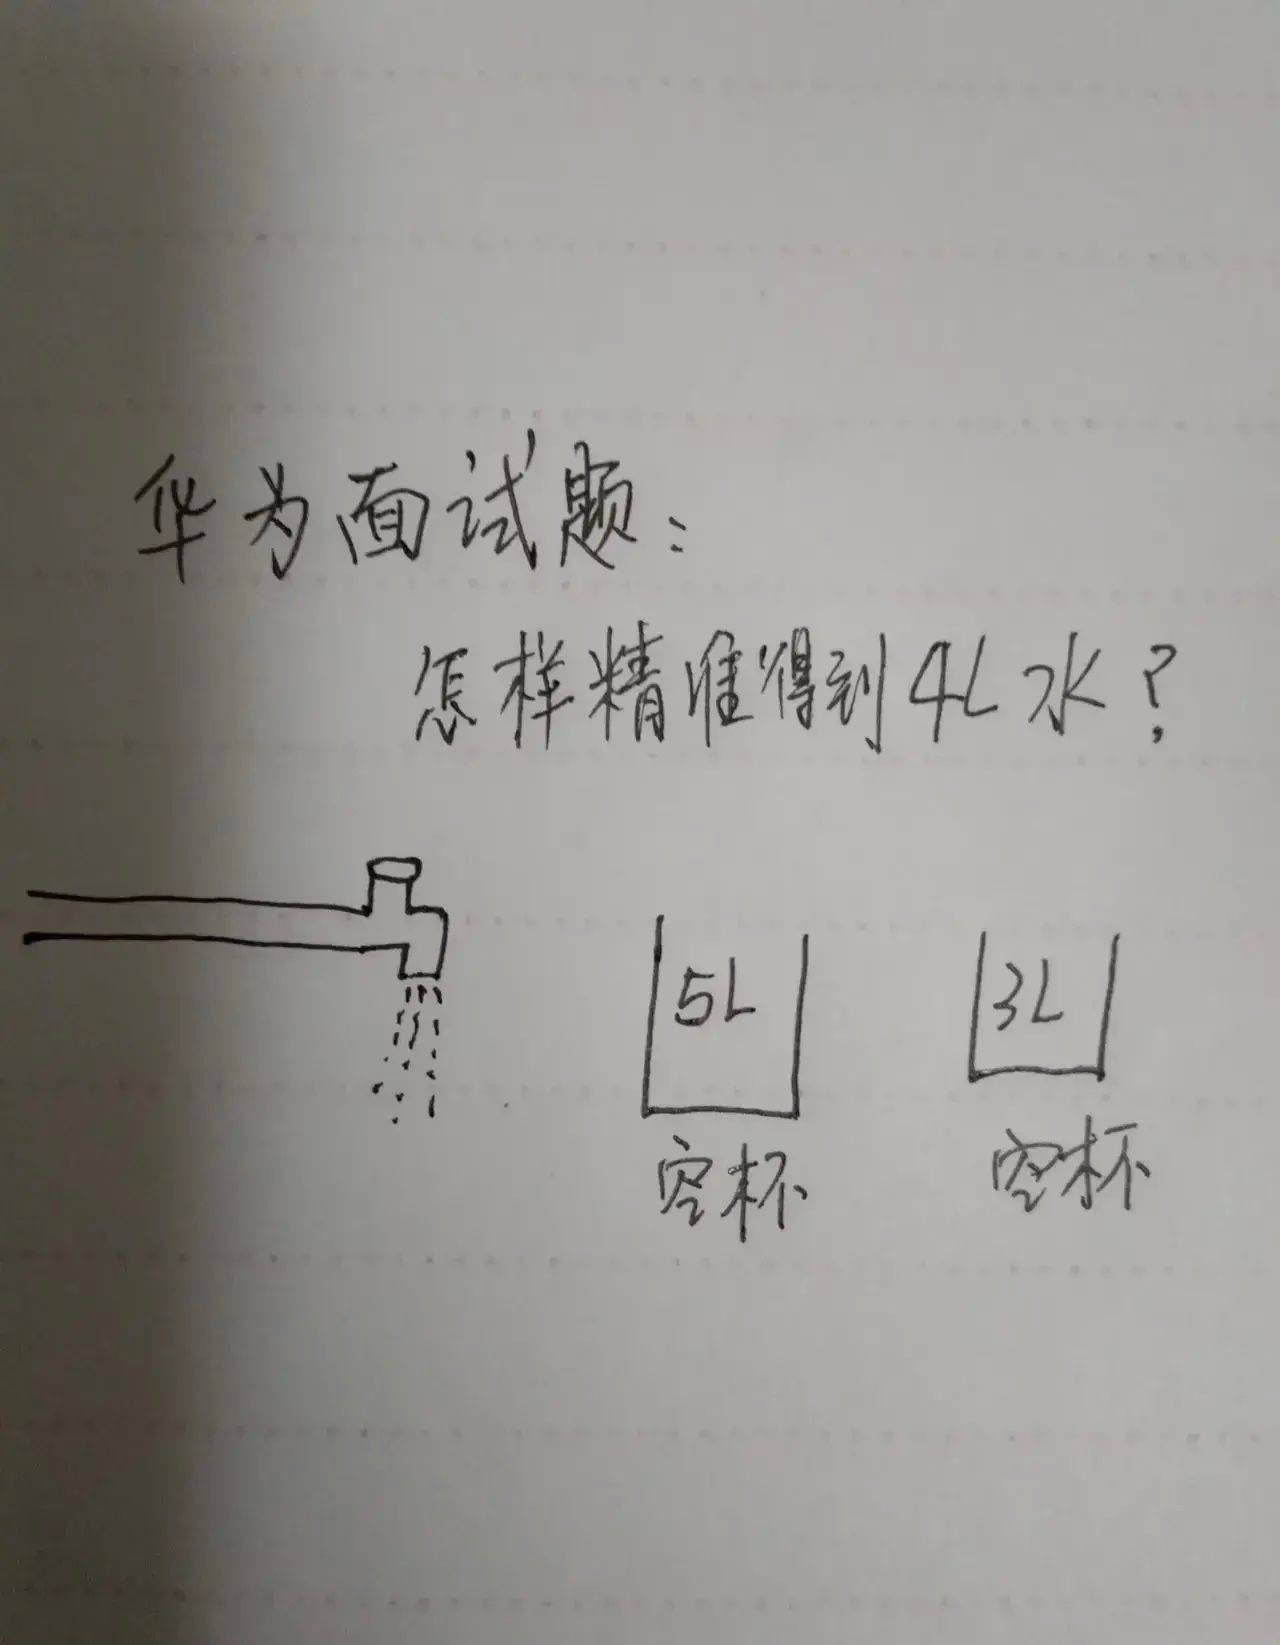 华为面试题:
怎样精准得到4L水?
5L 3L
空杯 空杯